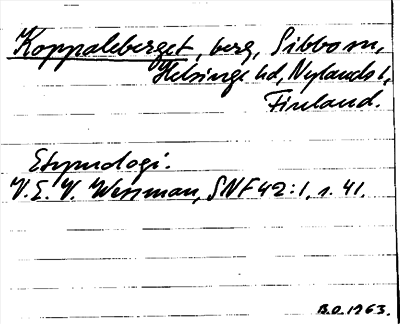 Koppaleberget, berg, Sibbo sn,
Helsinge hd, Nylands l,
Finland.
Etymologi.
V.E.V. Wessman, SNF 42:1, s. 41.
B.O. 1963.